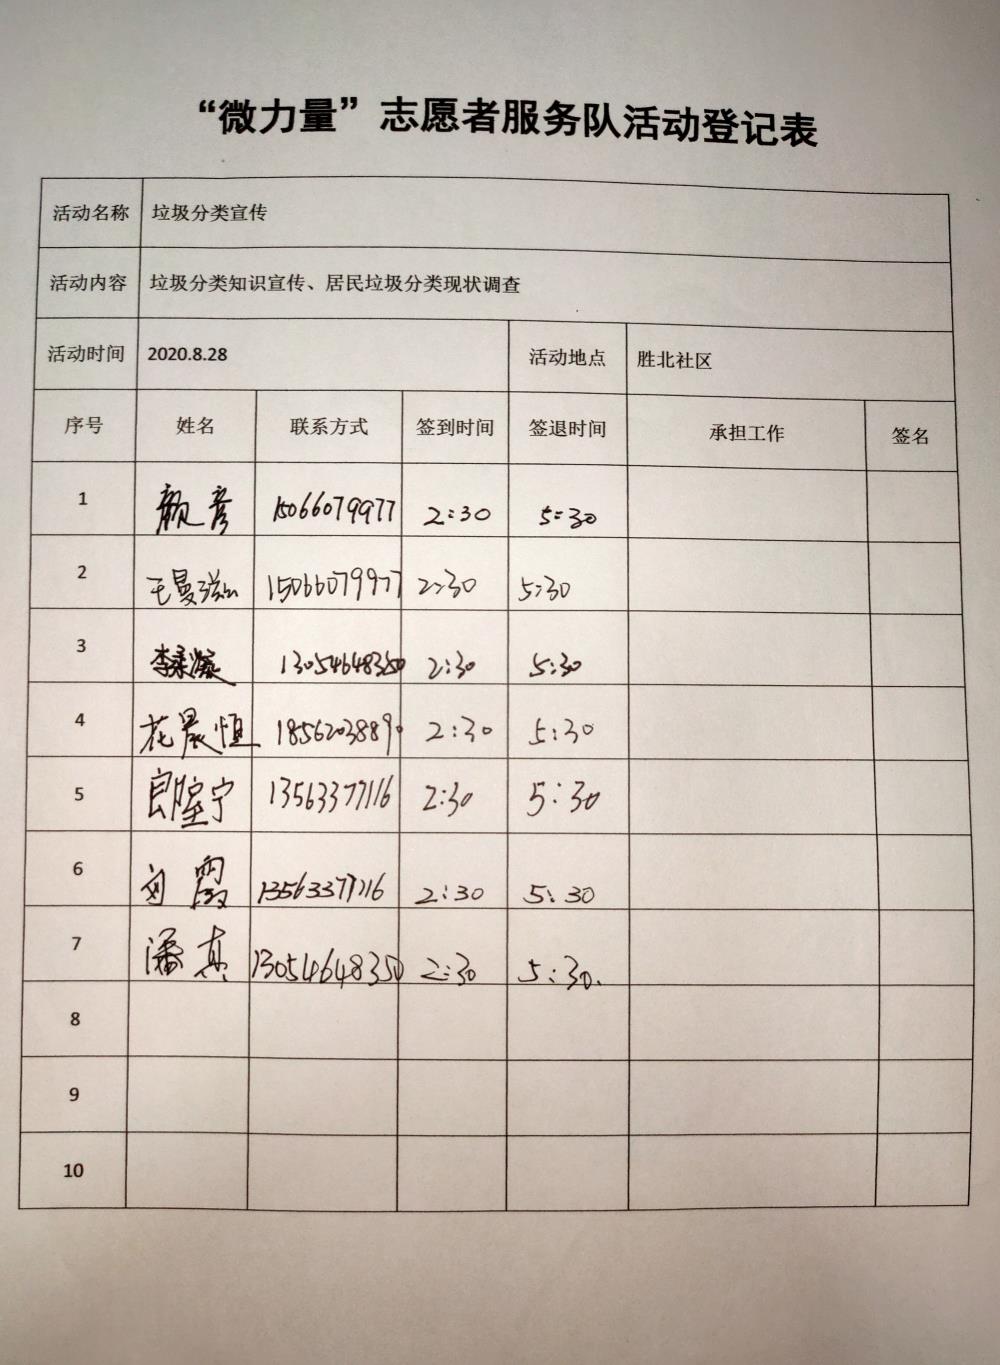 “微力量”志愿者服务队活动登记表
活动名称 垃圾分类宣传
活动内容 垃圾分类知识宣传、居民垃圾分类现状调查
活动时间 2020.8.28 活动地点 胜北社区
序号 姓名 联系方式 签到时间 签退时间 承担工作 签名
1 颜彦 15066079977 2:30 5:30
2 15066079977 2:30 5:30
3 13054648350 2:30 5:30
4 花晨恒 18562038890 2:30 5:30
5 13563377116 2:30 5:30
6 刘霞 13563377116 2:30 5:30
7 潘真 13054648350 2:30 5:30.
8
9
10